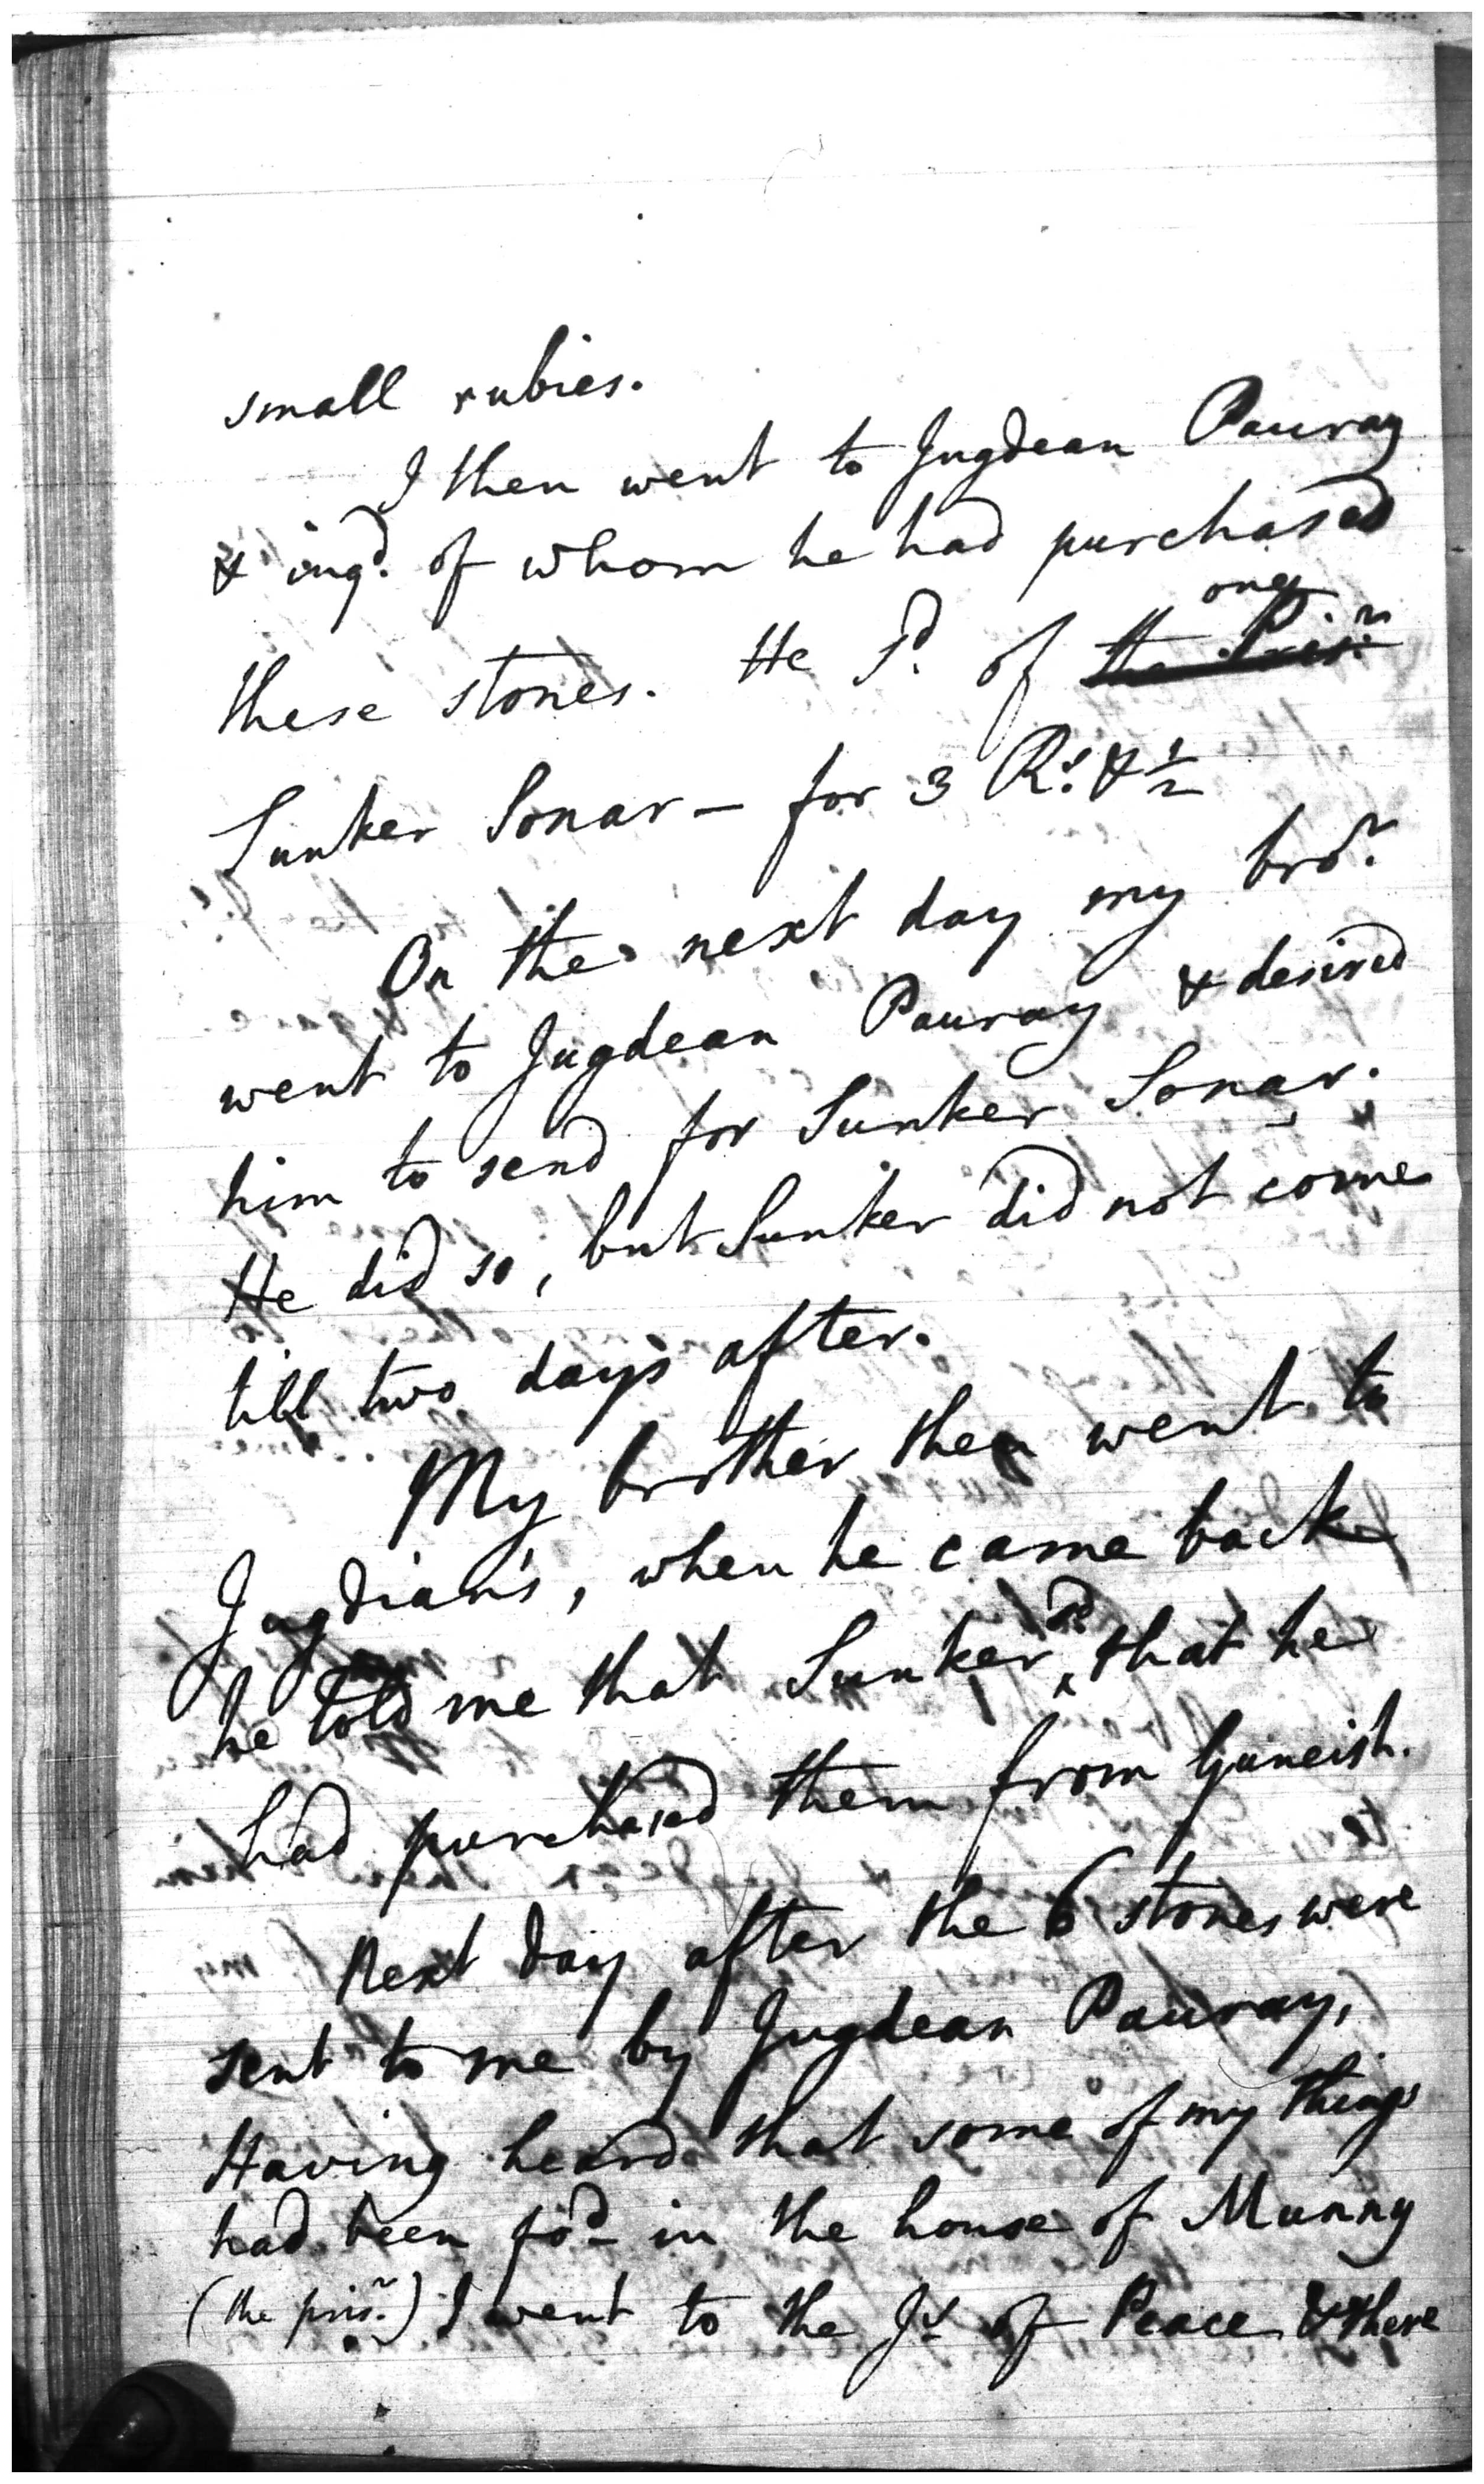 small rubies.
I then went to Jugdean Pauray
& inqd. of whom he had purchased
these stones. He sd. of one the Prisr.
Sunker Sonar - for 3 Rs. & 1/2
On the next day my bror.
went to Jugdean Pauray & desired
him to send for Sunker Sonar.
He did so, but Sunker did not come
till two days after.
My brother then went to
Jugdian's, when he came back
he told me that Sunker sd. that he
had purchased them from Guneish.
Next day after the 6 stones were
sent to me by Jugdean Pauray,
Having heard that some of my things
had been fod- in the house of Munny
(the prisr.) I went to the Js of Peace & there